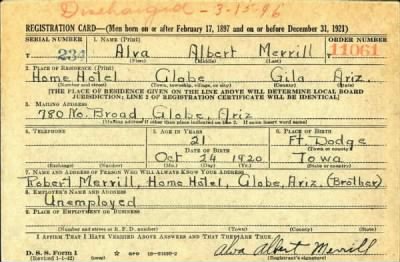 Discharged - 3-15-46
REGISTRATION CARD—(Men born on or after February 17, 1897 and on or before December 31, 1921)
SERIAL NUMBER 1. NAME (Print) ORDER NUMBER
234 Alva Albert Merrill 11061
(First) (Middle) (Last)
2. PLACE OF RESIDENCE (Print)
Home Hotel, Globe Gila Ariz.
(Number and street) (Town, township, village, or city) (County) (State)
[THE PLACE OF RESIDENCE GIVEN ON THE LINE ABOVE WILL DETERMINE LOCAL BOARD
JURISDICTION; LINE 2 OF REGISTRATION CERTIFICATE WILL BE IDENTICAL]
3. MAILING ADDRESS
780 No. Broad Globe, Ariz
[Mailing address if other than place indicated on line 2. If same insert word same]
4. TELEPHONE 5. AGE IN YEARS 6. PLACE OF BIRTH
21 Ft. Dodge
DATE OF BIRTH (Town or county)
Oct 24 1920 Iowa
(Exchange) (Number) (Mo.) (Day) (Yr.) (State or country)
7. NAME AND ADDRESS OF PERSON WHO WILL ALWAYS KNOW YOUR ADDRESS
Robert Merrill, Home Hotel, Globe, Ariz. (Brother)
8. EMPLOYER'S NAME AND ADDRESS
Unemployed
9. PLACE OF EMPLOYMENT OR BUSINESS
(Number and street or R. F. D. number) (Town) (County) (State)
I AFFIRM THAT I HAVE VERIFIED ABOVE ANSWERS AND THAT THEY ARE TRUE.
D. S. S. Form 1
(Revised 1-1-42) (over) Alva Albert Merrill
(Registrant's signature)